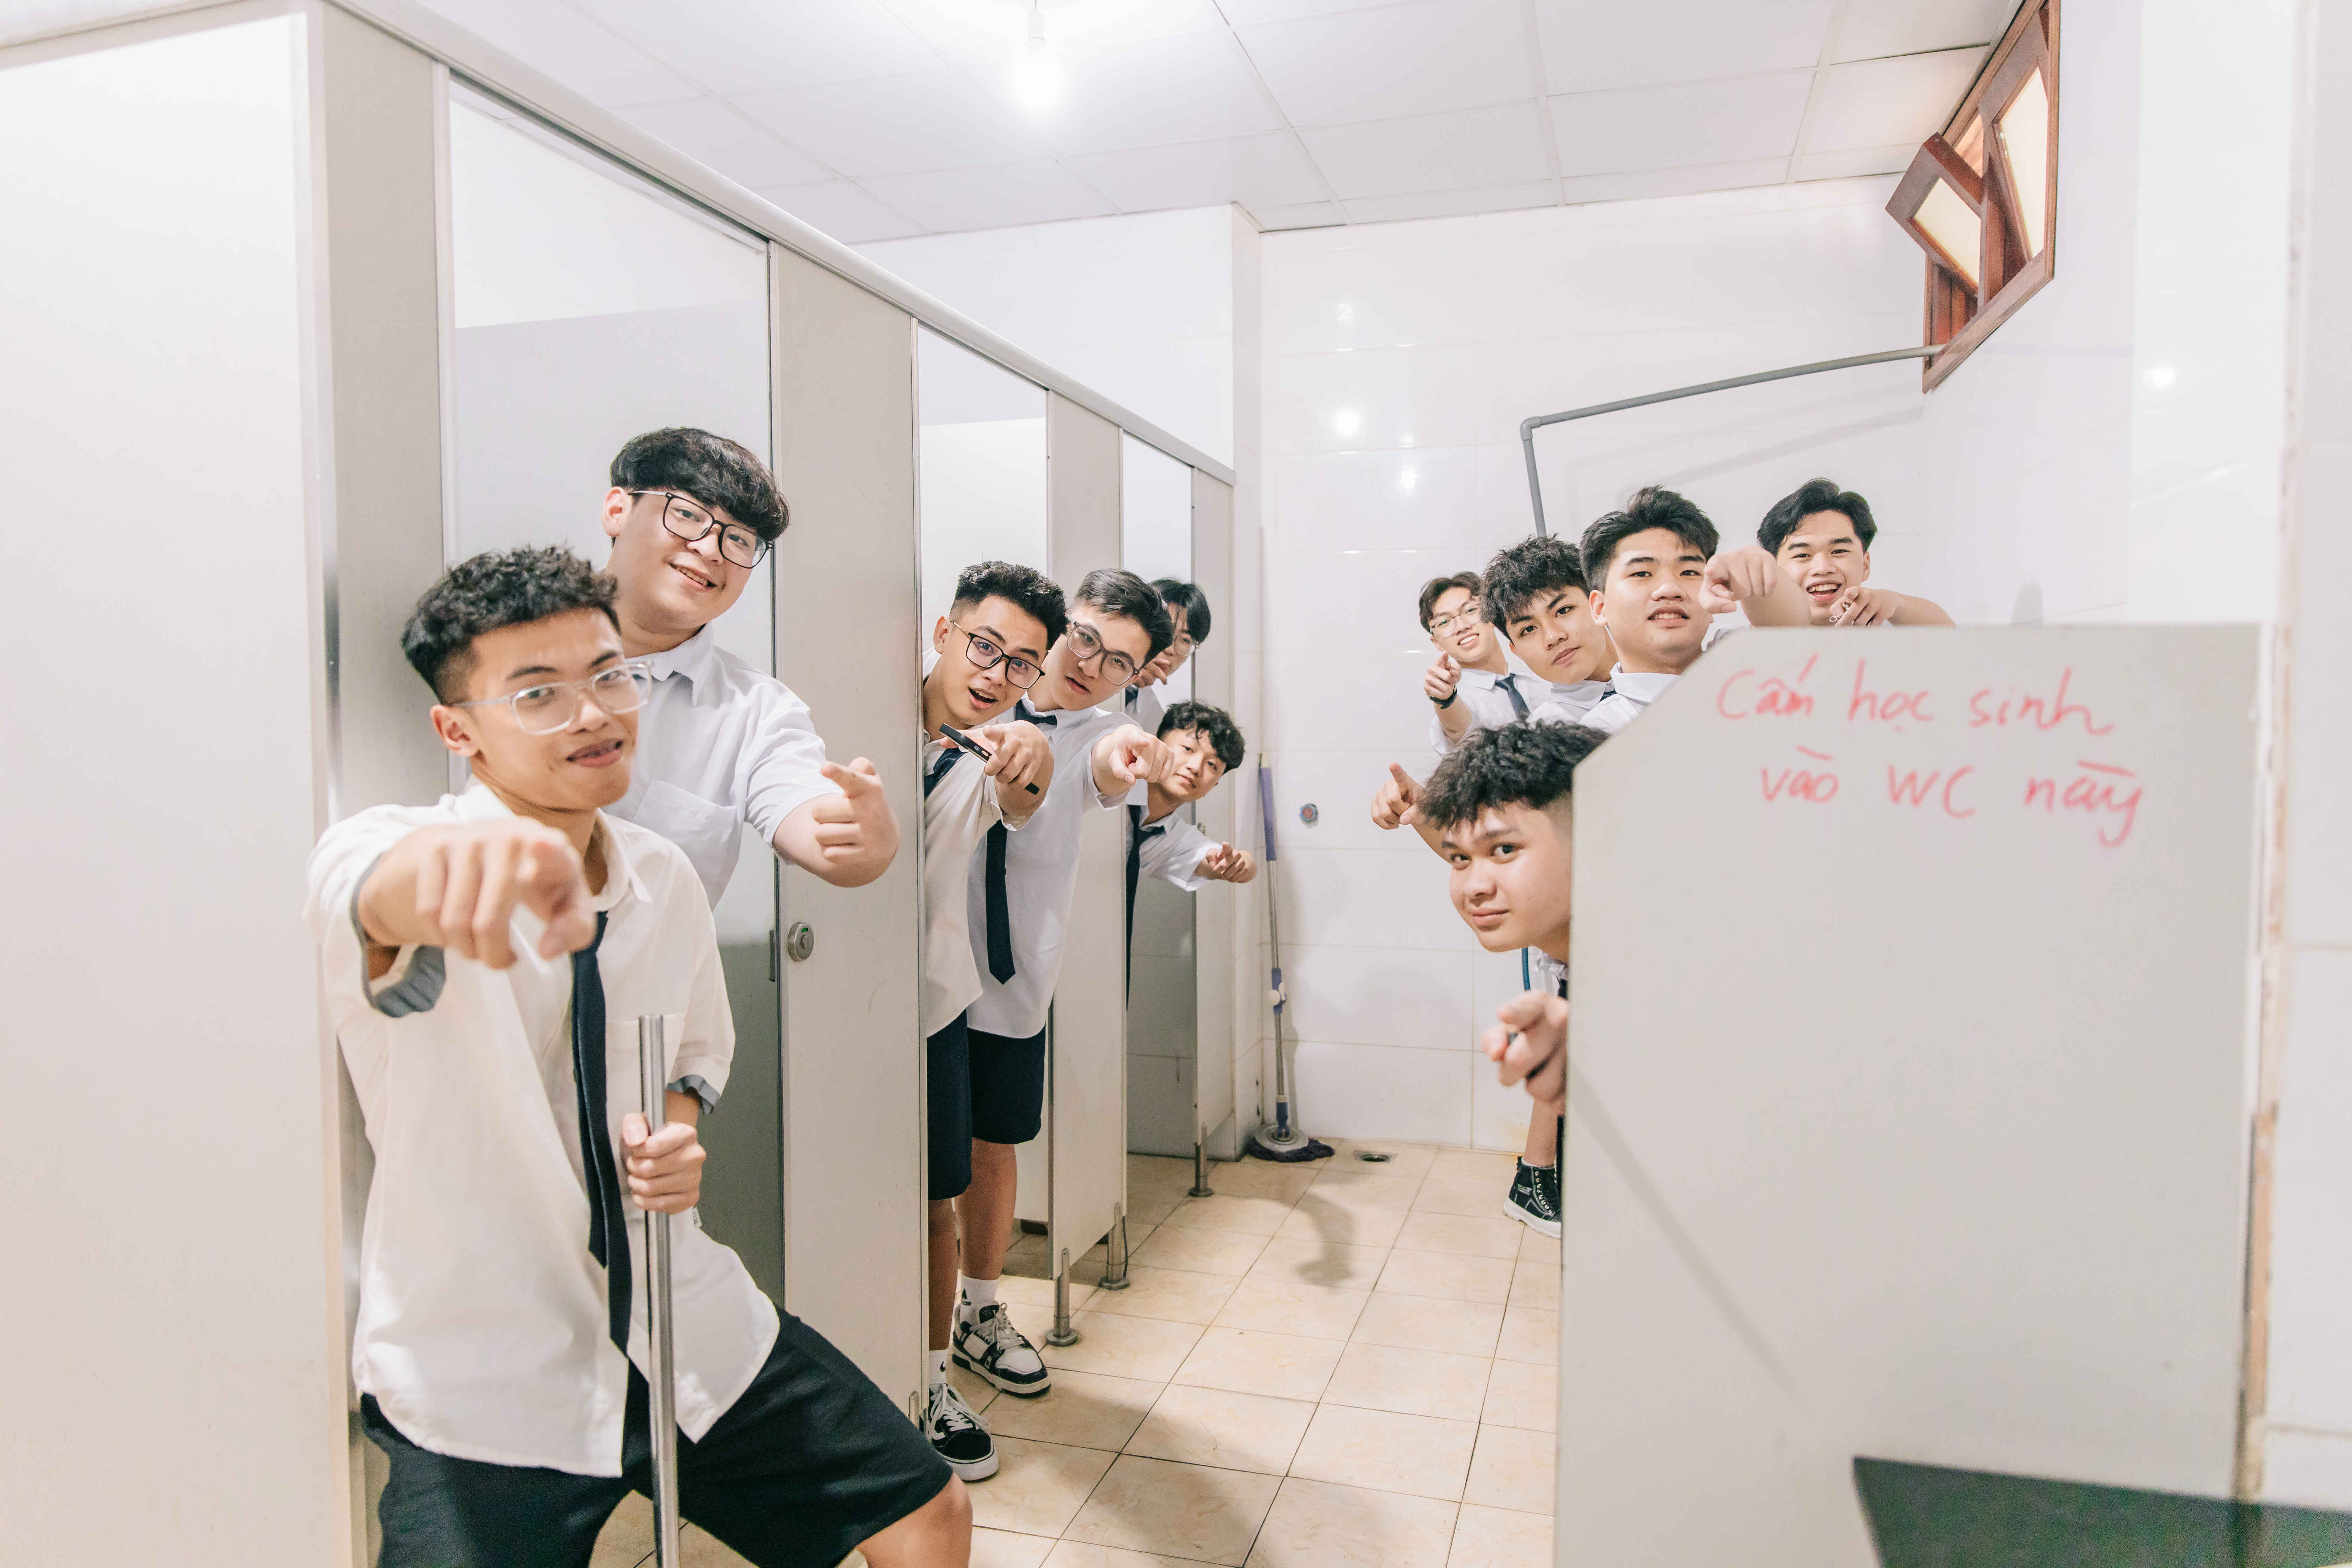 Cấm học sinh
vào WC này